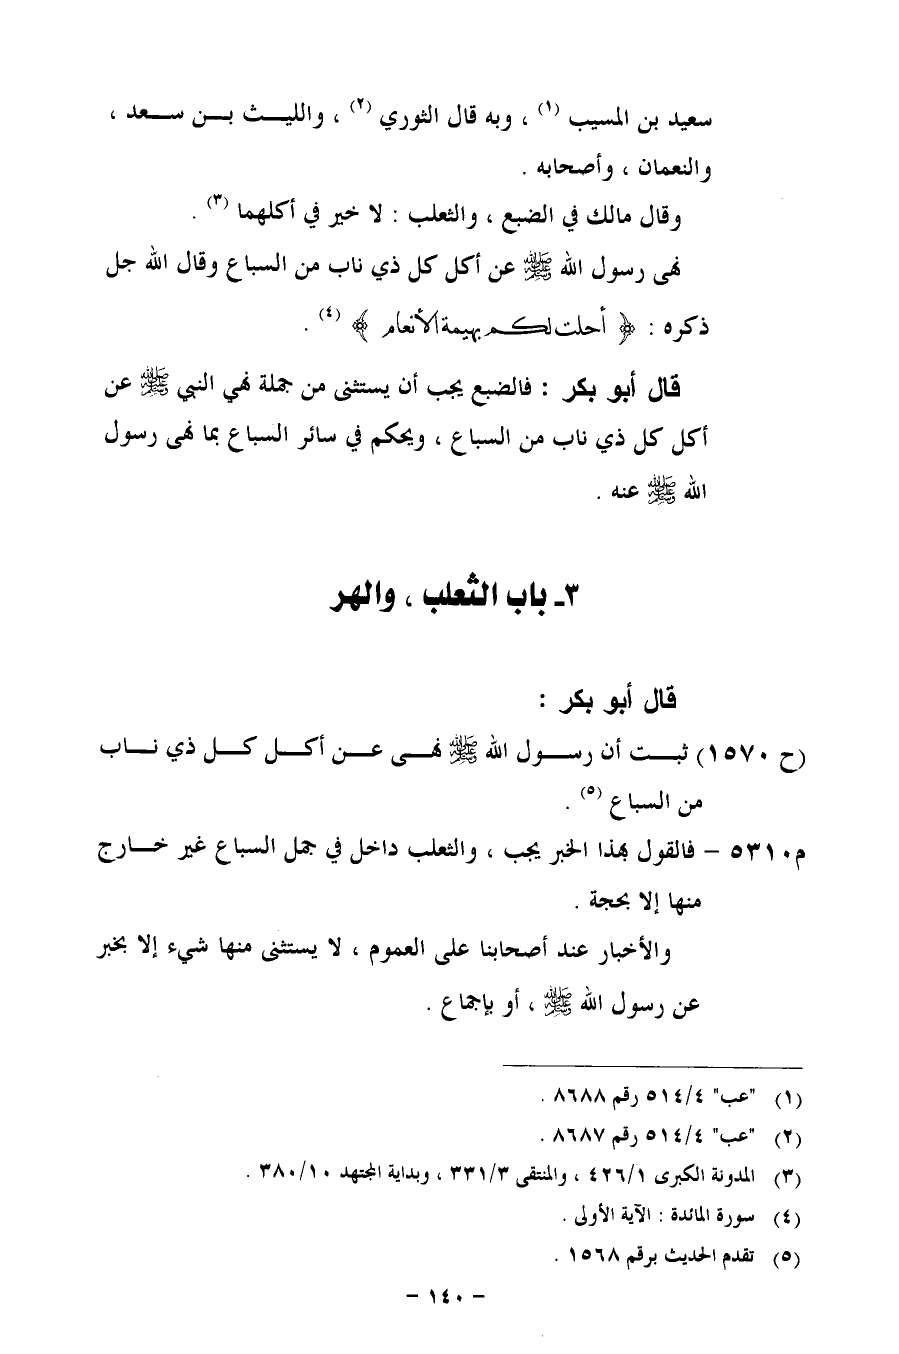 سعيد بن المسيب (١) ، وبه قال الثوري (٢) ، والليـــث بـــن ســـعد ،
والنعمان ، وأصحابه .
وقال مالك في الضبع ، والثعلب : لا خير في أكلهما (٣) .
نهى رسول الله ﷺ عن أكل كل ذي ناب من السباع وقال الله جل
ذكره : ﴿ أحلت لكم بهيمة الأنعام ﴾ (٤) .
قال أبو بكر : فالضبع يجب أن يستثنى من جملة نهي النبي ﷺ عن
أكل كل ذي ناب من السباع ، ويحكم في سائر السباع بما نهى رسول
الله ﷺ عنه .
٣ـ باب الثعلب ، والهر
قال أبو بكر :
(ح ١٥٧٠) ثبـــت أن رســـول الله ﷺ نهـــى عـــن أكـــل كـــل ذي نـــاب
من السباع (٥) .
م٥٣١٠ – فالقول بهذا الخبر يجب ، والثعلب داخل في جمل السباع غير خـــارج
منها إلا بحجة .
والأخبار عند أصحابنا على العموم ، لا يستثنى منها شيء إلا بخبر
عن رسول الله ﷺ ، أو بإجماع .
(١) "عب" ٥١٤/٤ رقم ٨٦٨٨ .
(٢) "عب" ٥١٤/٤ رقم ٨٦٨٧ .
(٣) المدونة الكبرى ٤٢٦/١ ، والمنتقى ٣٣١/٣ ، وبداية المجتهد ٣٨٠/١٠ .
(٤) سورة المائدة : الآية الأولى .
(٥) تقدم الحديث برقم ١٥٦٨ .
– ١٤٠ –